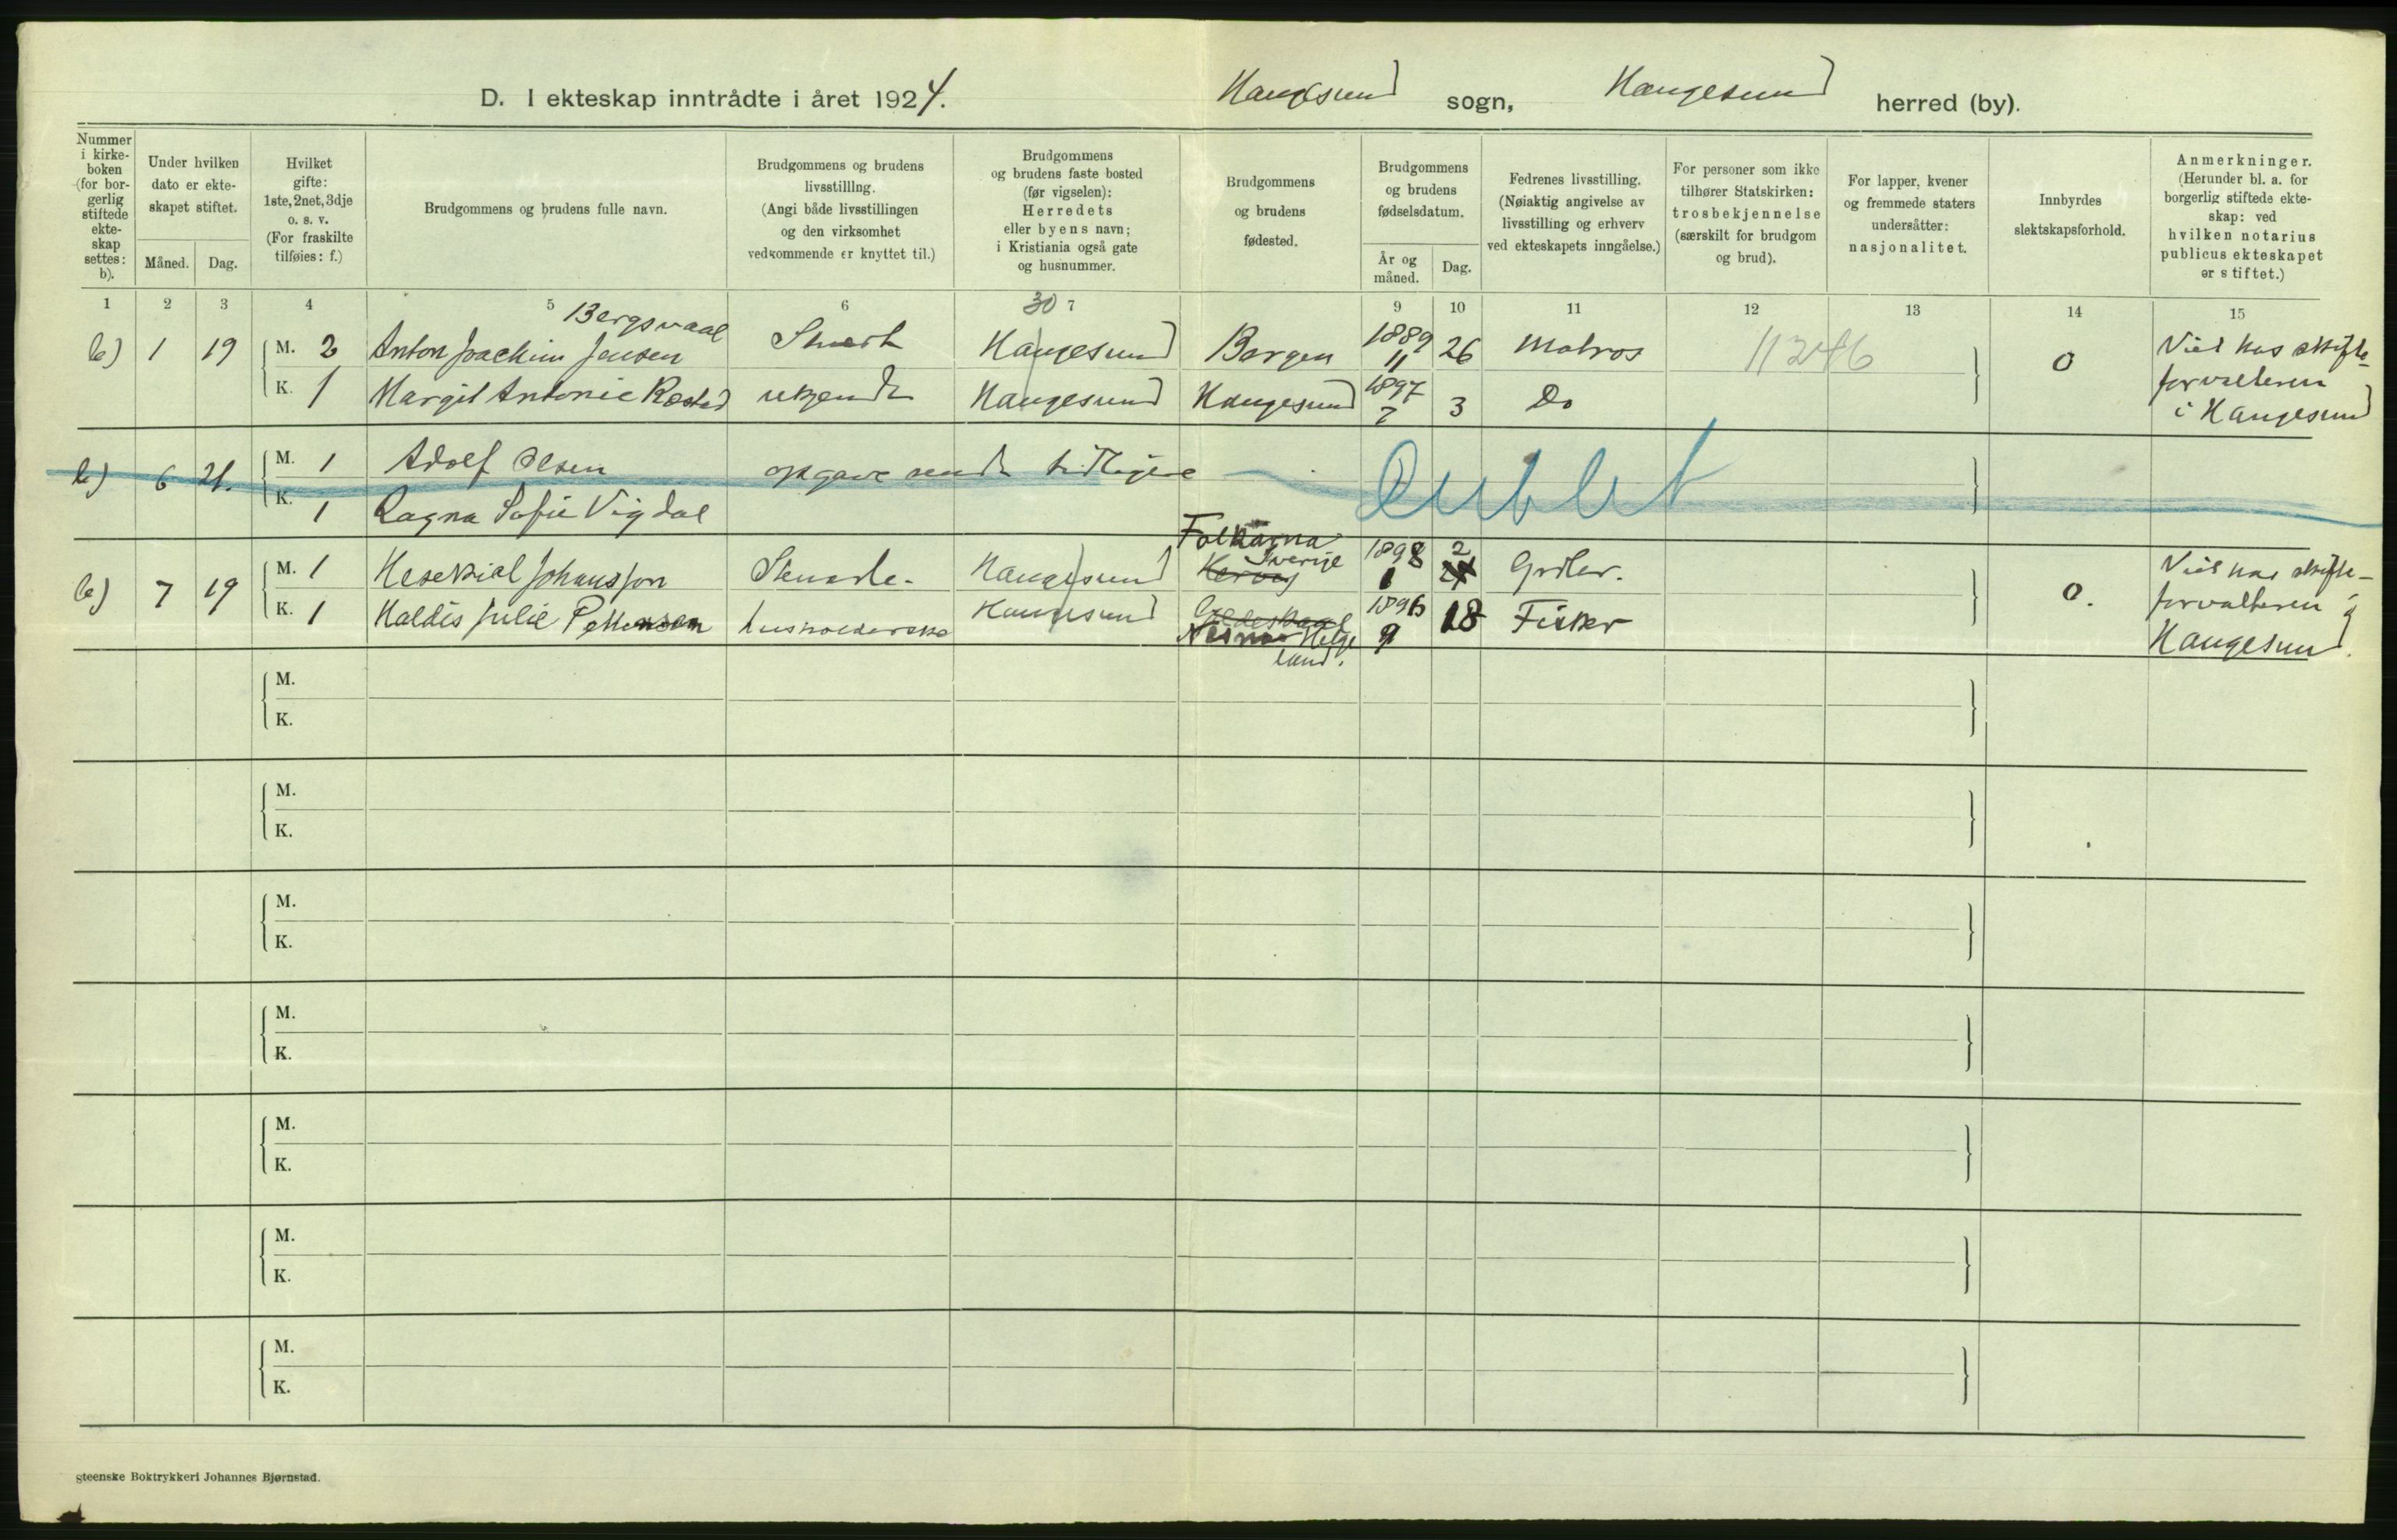 D. I ekteskap inntrådte i året 1924. Haugesund sogn, Haugesund herred (by).
Nummer
i kirke-
boken
(for bor-
gerlig
stiftede
ekte-
skap
settes:
b).
Under hvilken
dato er ekte-
skapet stiftet.
Måned. Dag.
Hvilket
gifte:
1ste, 2net, 3dje
o. s. v.
(For fraskilte
tilføies: f.)
Brudgommens og brudens fulle navn.
Brudgommens og brudens
livsstilllng.
(Angi både livsstillingen
og den virksomhet
vedkommende er knyttet til.)
Brudgommens
og brudens faste bosted
(før vigselen):
Herredets
eller byens navn;
i Kristiania også gate
og husnummer.
Brudgommens
og brudens
fødested.
Brudgommens
og brudens
fødselsdatum.
År og
måned.
Dag.
Fedrenes livsstilling.
(Nøiaktig angivelse av
livsstilling og erhverv
ved ekteskapets inngåelse.)
For personer som ikke
tilhører Statskirken:
trosbekjennelse
(særskilt for brudgom
og brud).
For lapper, kvener
og fremmede staters
undersåtter:
nasjonalitet.
Innbyrdes
slektskapsforhold.
Anmerkninger.
(Herunder bl. a. for
borgerlig stiftede ekte-
skap: ved
hvilken notarius
publicus ekteskapet
er stiftet.)
1 2 3 4 5 6 7 8 9 10 11 12 13 14 15
30
Bergsvaal
b) 1 19 M. 2 Anton Joachim Jensen Haugesund Bergen 1889 11 26 Matros 11246 0 Viet hos skifte-
forvalteren
i Haugesund
K. 1 Margit Antonie Rostad ukjendt Haugesund Haugesund 1897 7 3 Do
b) 6 21. M. 1 Adolf Olsen opgave sendt tidligere Dublet
K. 1 Ragna Sofie Vigdal
b) 7 19 M. 1 Hesekial Johansson Stuerte- Haugesund Folkärna Sverige 1898 1 2 Grdbr. 0. Viet hos skifte-
forvalteren i
Haugesund.
K. 1 Haldis Julie Pettersen husholderske Haugesund Gildeskaal Nesna Helge
land. 1896 9 18 Fisker
M.
K.
M.
K.
M.
K.
M.
K.
M.
K.
M.
K.
M.
K.
steenske Boktrykkeri Johannes Bjørnstad.